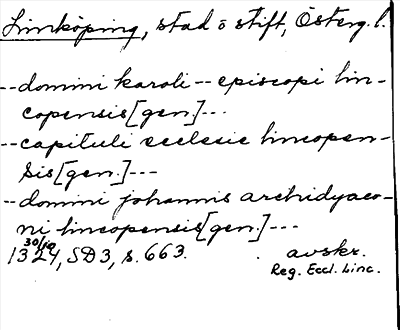 Linköping, stad o stift, Österg. l.
--domini karoli--episcopi lin-
copensis[gen.]---
--capituli ecclesie lincopen-
sis[gen.]---
--domini johannis archidyaco-
ni lincopensis[gen.]---
30/10
1324, SD3, s. 663. avskr.
Reg. Eccl. Linc.